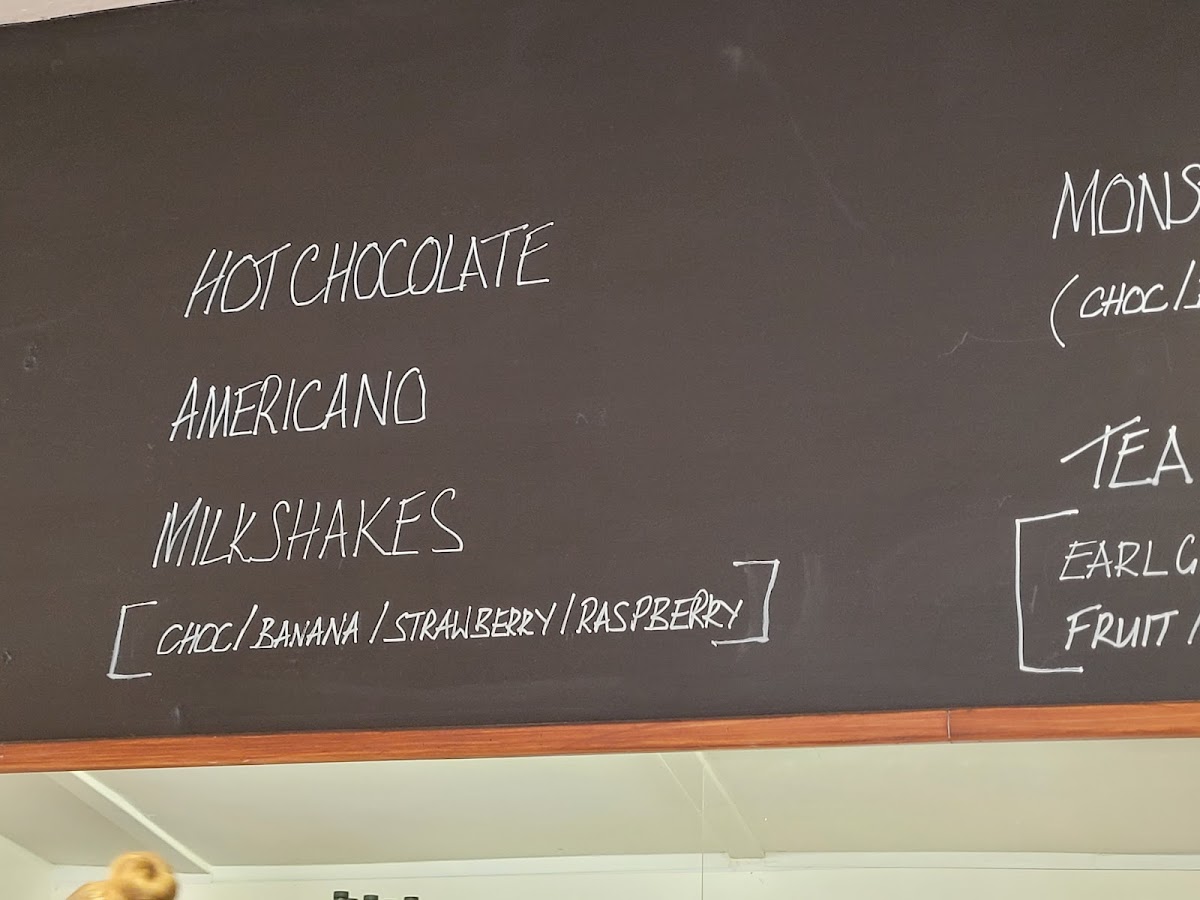 HOT CHOCOLATE
AMERICANO
MILKSHAKES
[CHOC/BANANA/STRAWBERRY/RASPBERRY]
MONS
(CHOC/
TEA
[EARL G
FRUIT /